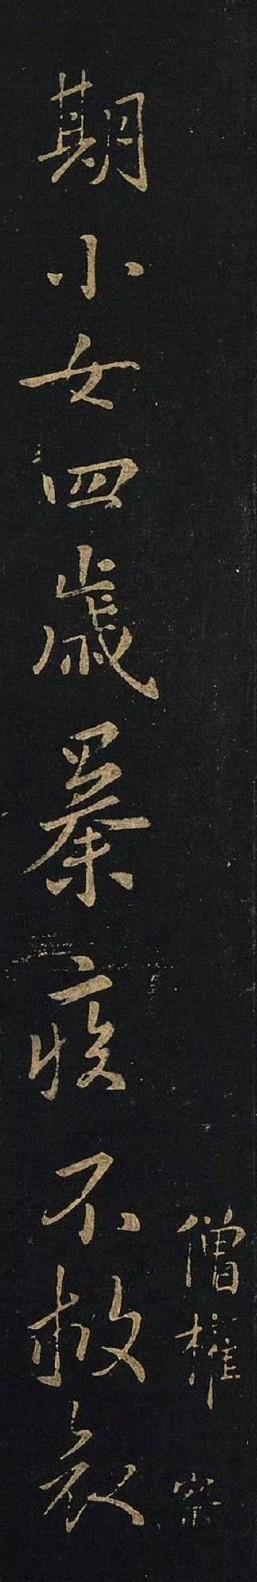 期小女四歲暴疾不救哀
僧權
察